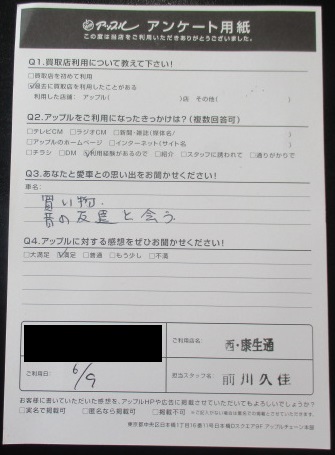 アップル アンケート用紙
この度は当店をご利用いただきありがとうございました。
Q1.買取店利用について教えて下さい!
□買取店を初めて利用
☑過去に買取店を利用したことがある
利用した店舗: アップル( )店 その他( )
Q2.アップルをご利用になったきっかけは?(複数回答可)
□テレビCM □ラジオCM □新聞・雑誌(媒体名/ )
□アップルのホームページ □インターネット(サイト名 )
□チラシ □DM ☑利用経験があるので □紹介 □スタッフに誘われて □通りがかりで
Q3.あなたと愛車との思い出をお聞かせください!
車名:
買い物.
昔の友達と会う
Q4.アップルに対する感想をぜひお聞かせください!
□大満足 ☑満足 □普通 □もう少し □不満
ご利用店名:
西・康生通
ご利用日:
6/9
担当スタッフ名:
前川久佳
お客様に書いていただいた感想を、アップルHPや広告に掲載させていただいてもよろしいでしょうか?
□実名で掲載可 □匿名なら掲載可 □掲載不可
東京都中央区日本橋1丁目16番11号日本橋Dスクエア5F アップルチェーン本部